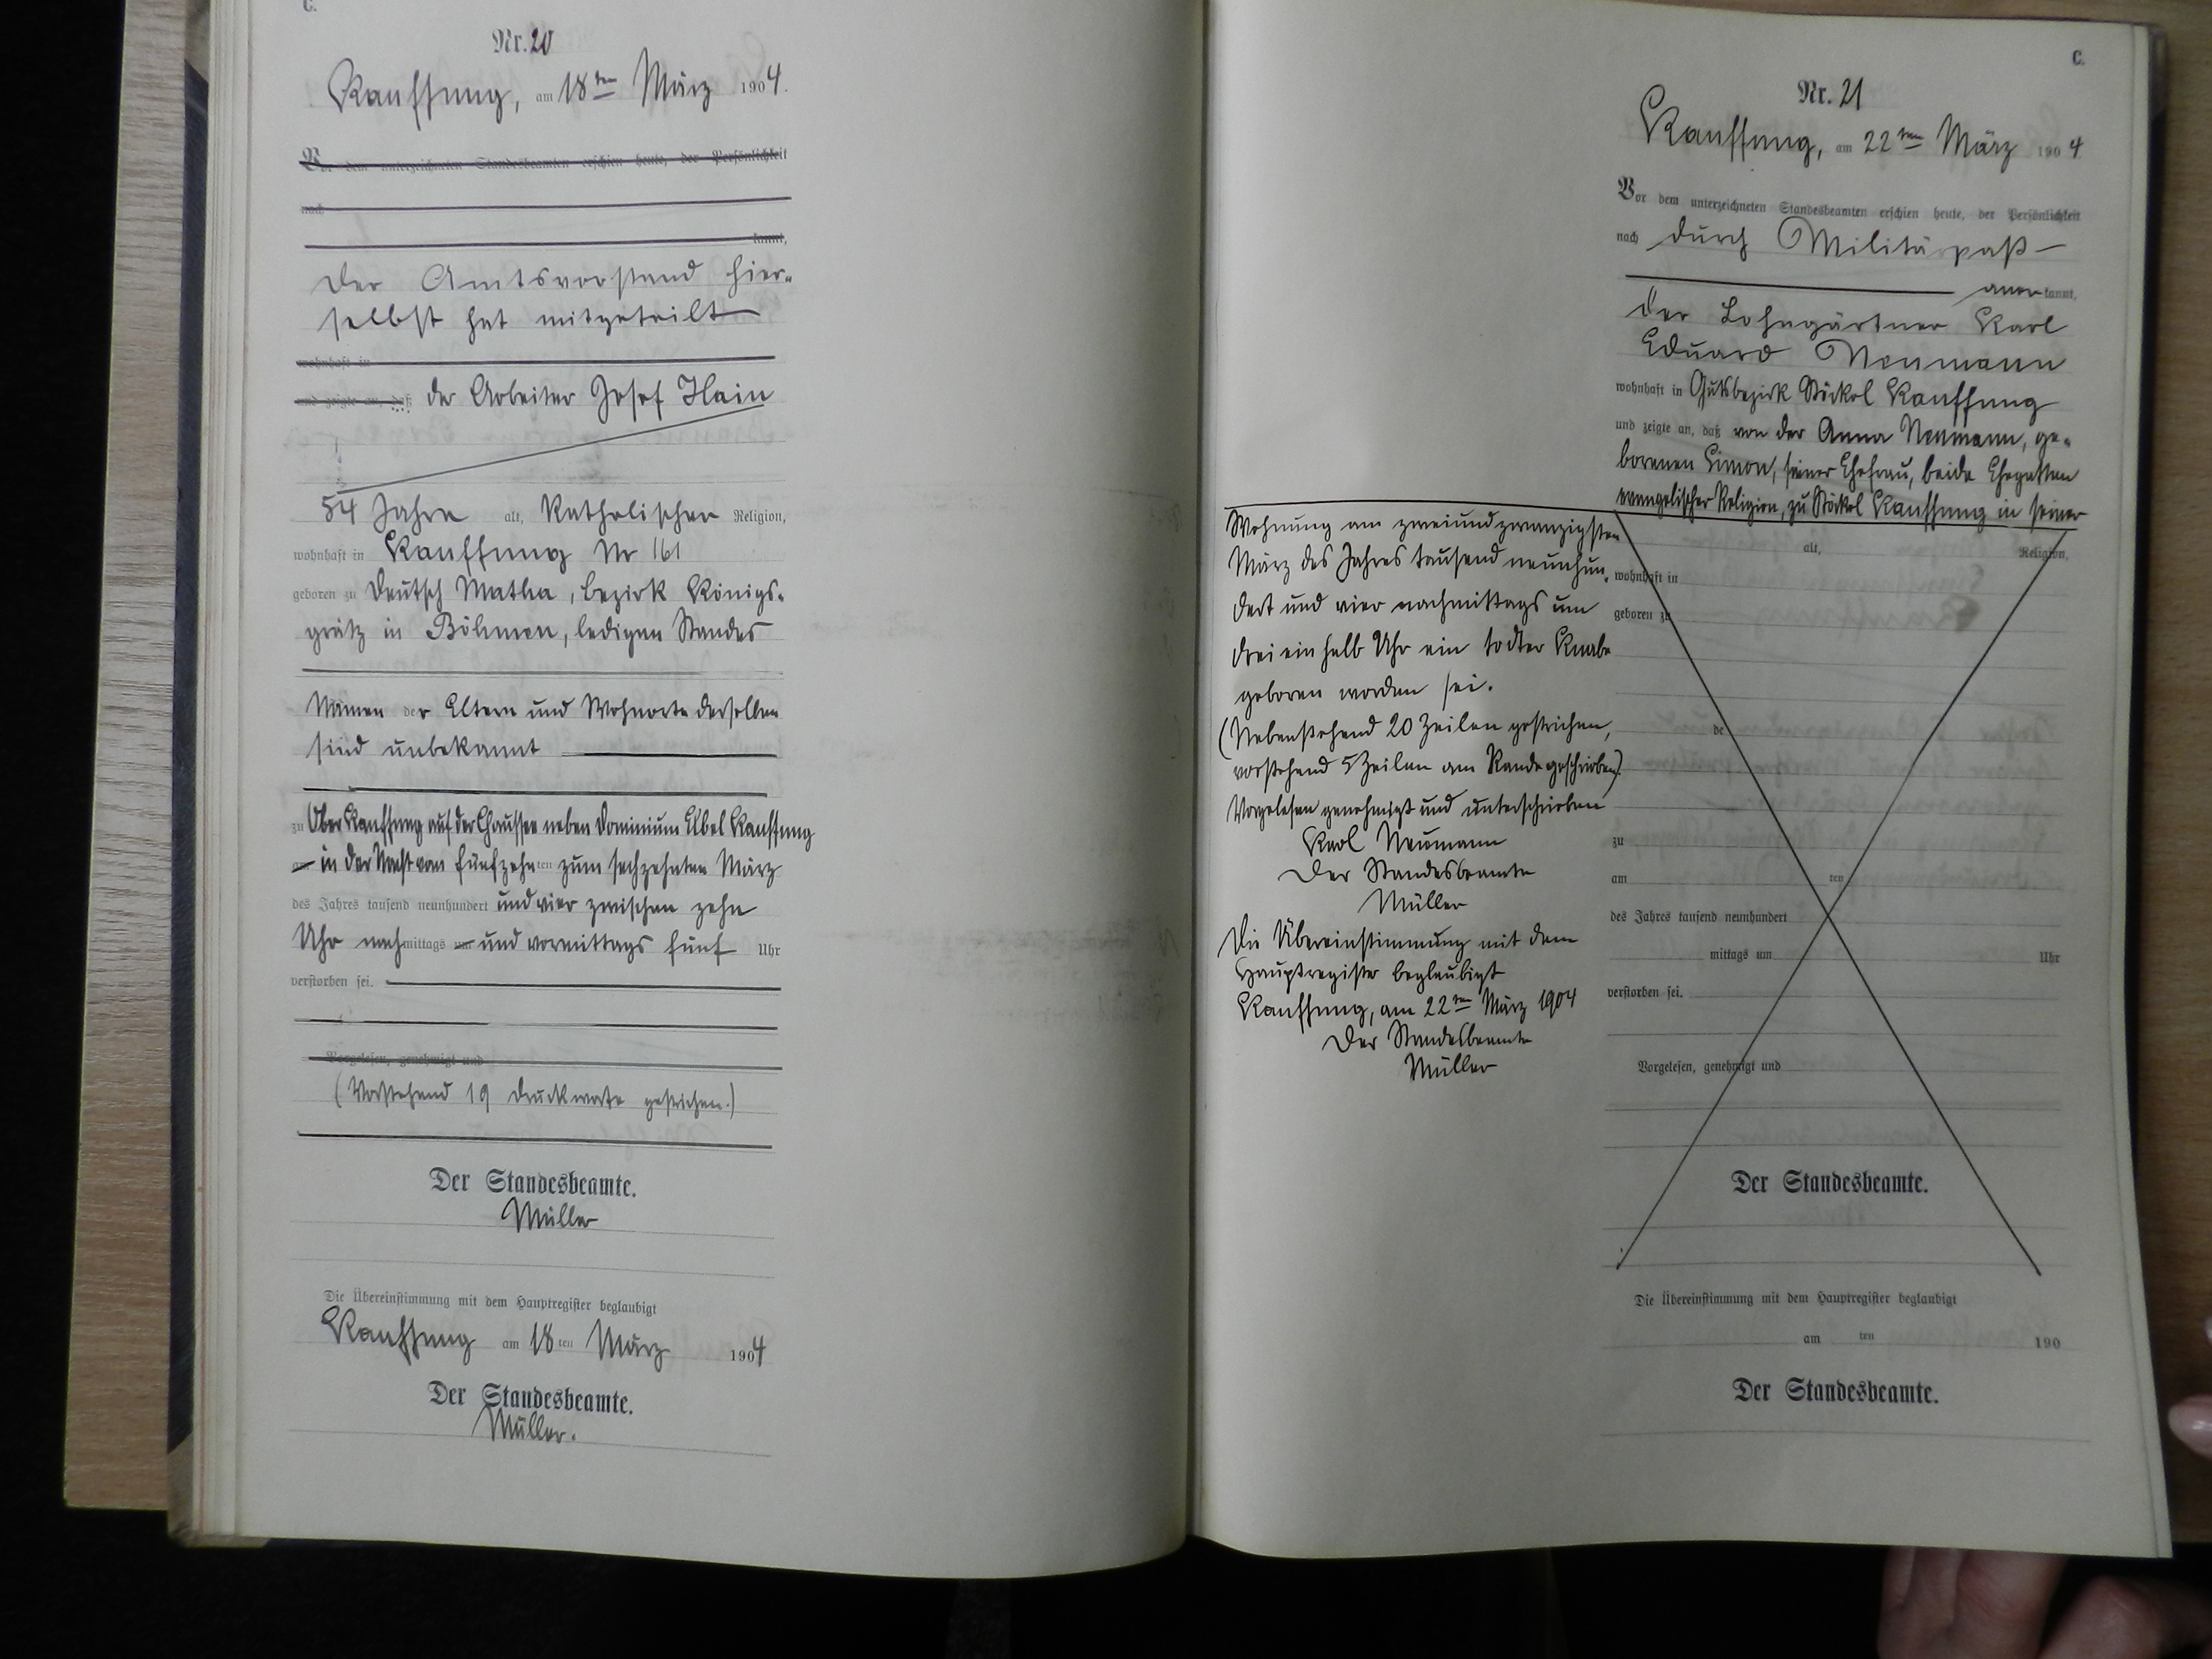 C.
Nr. 20
Kauffung, am 18ten März 1904.
Vor dem unterzeichneten Standesbeamten erschien heute, der Persönlichkeit
nach
kannt,
der Amtsvorstand hier-
selbst hat mitgeteilt
wohnhaft in
und zeigte an, daß der Arbeiter Josef Hain
54 Jahre alt, Katholischer Religion,
wohnhaft in Kauffung Nr 161
geboren zu Deutsch Matha, Bezirk Königs-
grätz in Böhmen, ledigen Standes
Namen der Eltern und Wohnorte derselben
sind unbekannt
zu Ober Kauffung auf der Chaussee neben Dominium Elbel Kauffung
am in der Nacht vom fünfzehnten zum sechzehnten März
des Jahres tausend neunhundert und vier zwischen zehn
Uhr nachmittags um und vormittags fünf Uhr
verstorben sei.
Vorgelesen, genehmigt und
(Vorstehend 19 Druckworte gestrichen.)
Der Standesbeamte.
Müller
Die Übereinstimmung mit dem Hauptregister beglaubigt
Kauffung am 18ten März 1904
Der Standesbeamte.
Müller.
C.
Nr. 21
Kauffung, am 22ten März 1904
Vor dem unterzeichneten Standesbeamten erschien heute, der Persönlichkeit
nach durch Militärpaß
anerkannt,
der Lohngärtner Karl
Eduard Neumann
wohnhaft in Gutsbezirk Stöckel Kauffung
und zeigte an, daß von der Anna Neumann, ge-
borenen Simon, seiner Ehefrau, beide Ehegatten
evangelischer Religion, zu Stöckel Kauffung in seiner
Wohnung am zweiundzwanzigsten
März des Jahres tausend neunhun-
dert und vier nachmittags um
drei ein halb Uhr ein todter Knabe
geboren worden sei.
(Nebenstehend 20 Zeilen gestrichen,
vorstehend 5 Zeilen am Rande geschrieben)
Vorgelesen genehmigt und unterschrieben
Karl Neumann
Der Standesbeamte
Müller
Die Übereinstimmung mit dem
Hauptregister beglaubigt
Kauffung, am 22ten März 1904
Der Standesbeamte
Müller
alt, Religion,
wohnhaft in
geboren zu
de
zu
am ten
des Jahres tausend neunhundert
mittags um Uhr
verstorben sei.
Vorgelesen, genehmigt und
Der Standesbeamte.
Die Übereinstimmung mit dem Hauptregister beglaubigt
am ten 190
Der Standesbeamte.